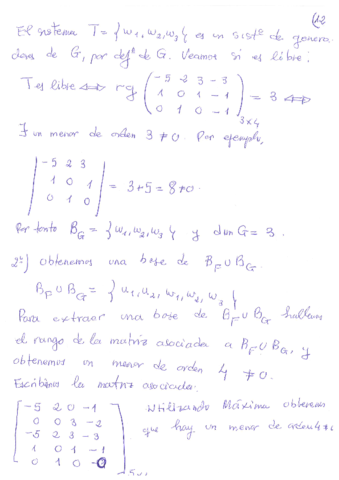 12
El sistema T = {w1, w2, w3} es un sistª de genera-
dores de G, por defª de G. Veamos si es libre:
T es libre ⟺ rg ( -5 2 3 -3
1 0 1 -1
0 1 0 -1 )3x4 = 3 ⟺
∃ un menor de orden 3 ≠ 0. Por ejemplo,
| -5 2 3
1 0 1
0 1 0 | = 3+5 = 8 ≠ 0.
Por tanto BG = {w1, w2, w3} y dim G = 3.
2º) obtenemos una base de BF ∪ BG.
BF ∪ BG = {u1, u2, w1, w2, w3}
Para extraer una base de BF ∪ BG hallamos
el rango de la matriz asociada a BF ∪ BG, y
obtenemos un menor de orden 4 ≠ 0.
Escribimos la matriz asociada.
[ -5 2 0 -1
0 0 3 -2
-5 2 3 -3
1 0 1 -1
0 1 0 ]
Utilizando Máxima obtenemos
que hay un menor de orden 4